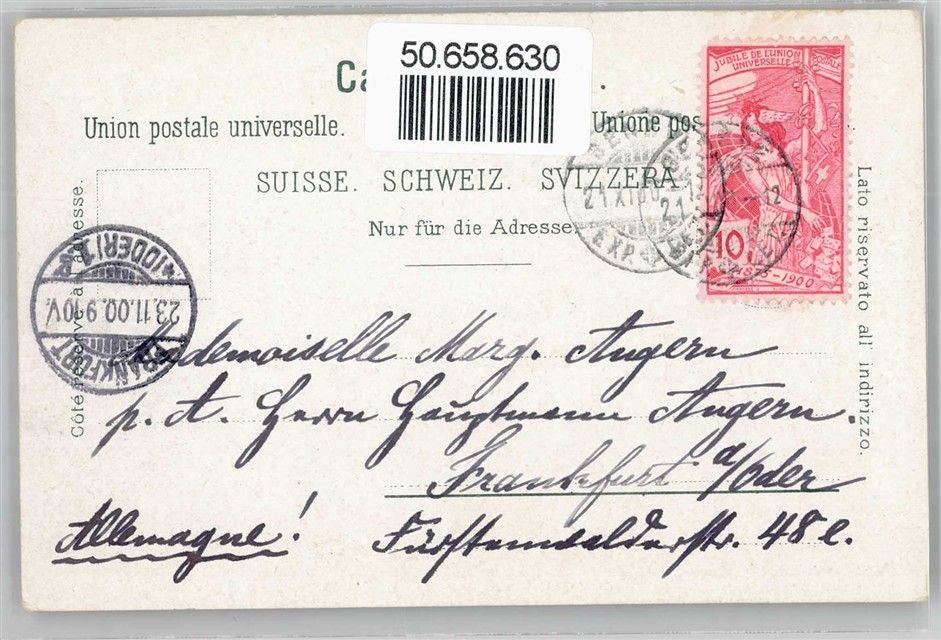 50.658.630
Ca
Union postale universelle. Unione pos
SUISSE. SCHWEIZ. SVIZZERA.
Nur für die Adresse
Côté réservé à l'adresse.
Lato riservato all' indirizzo.
JUBILÉ DE L'UNION POSTALE
UNIVERSELLE
10
1900
21.XI.00
EXP.
FRANKFURT
23.11.00.9-10V.
(ODER) 1
Mademoiselle Marg. Angern
p. A. Herrn Hauptmann Angern.
Frankfurt a/Oder
Allemagne! Fürstenwalderstr. 48 e.